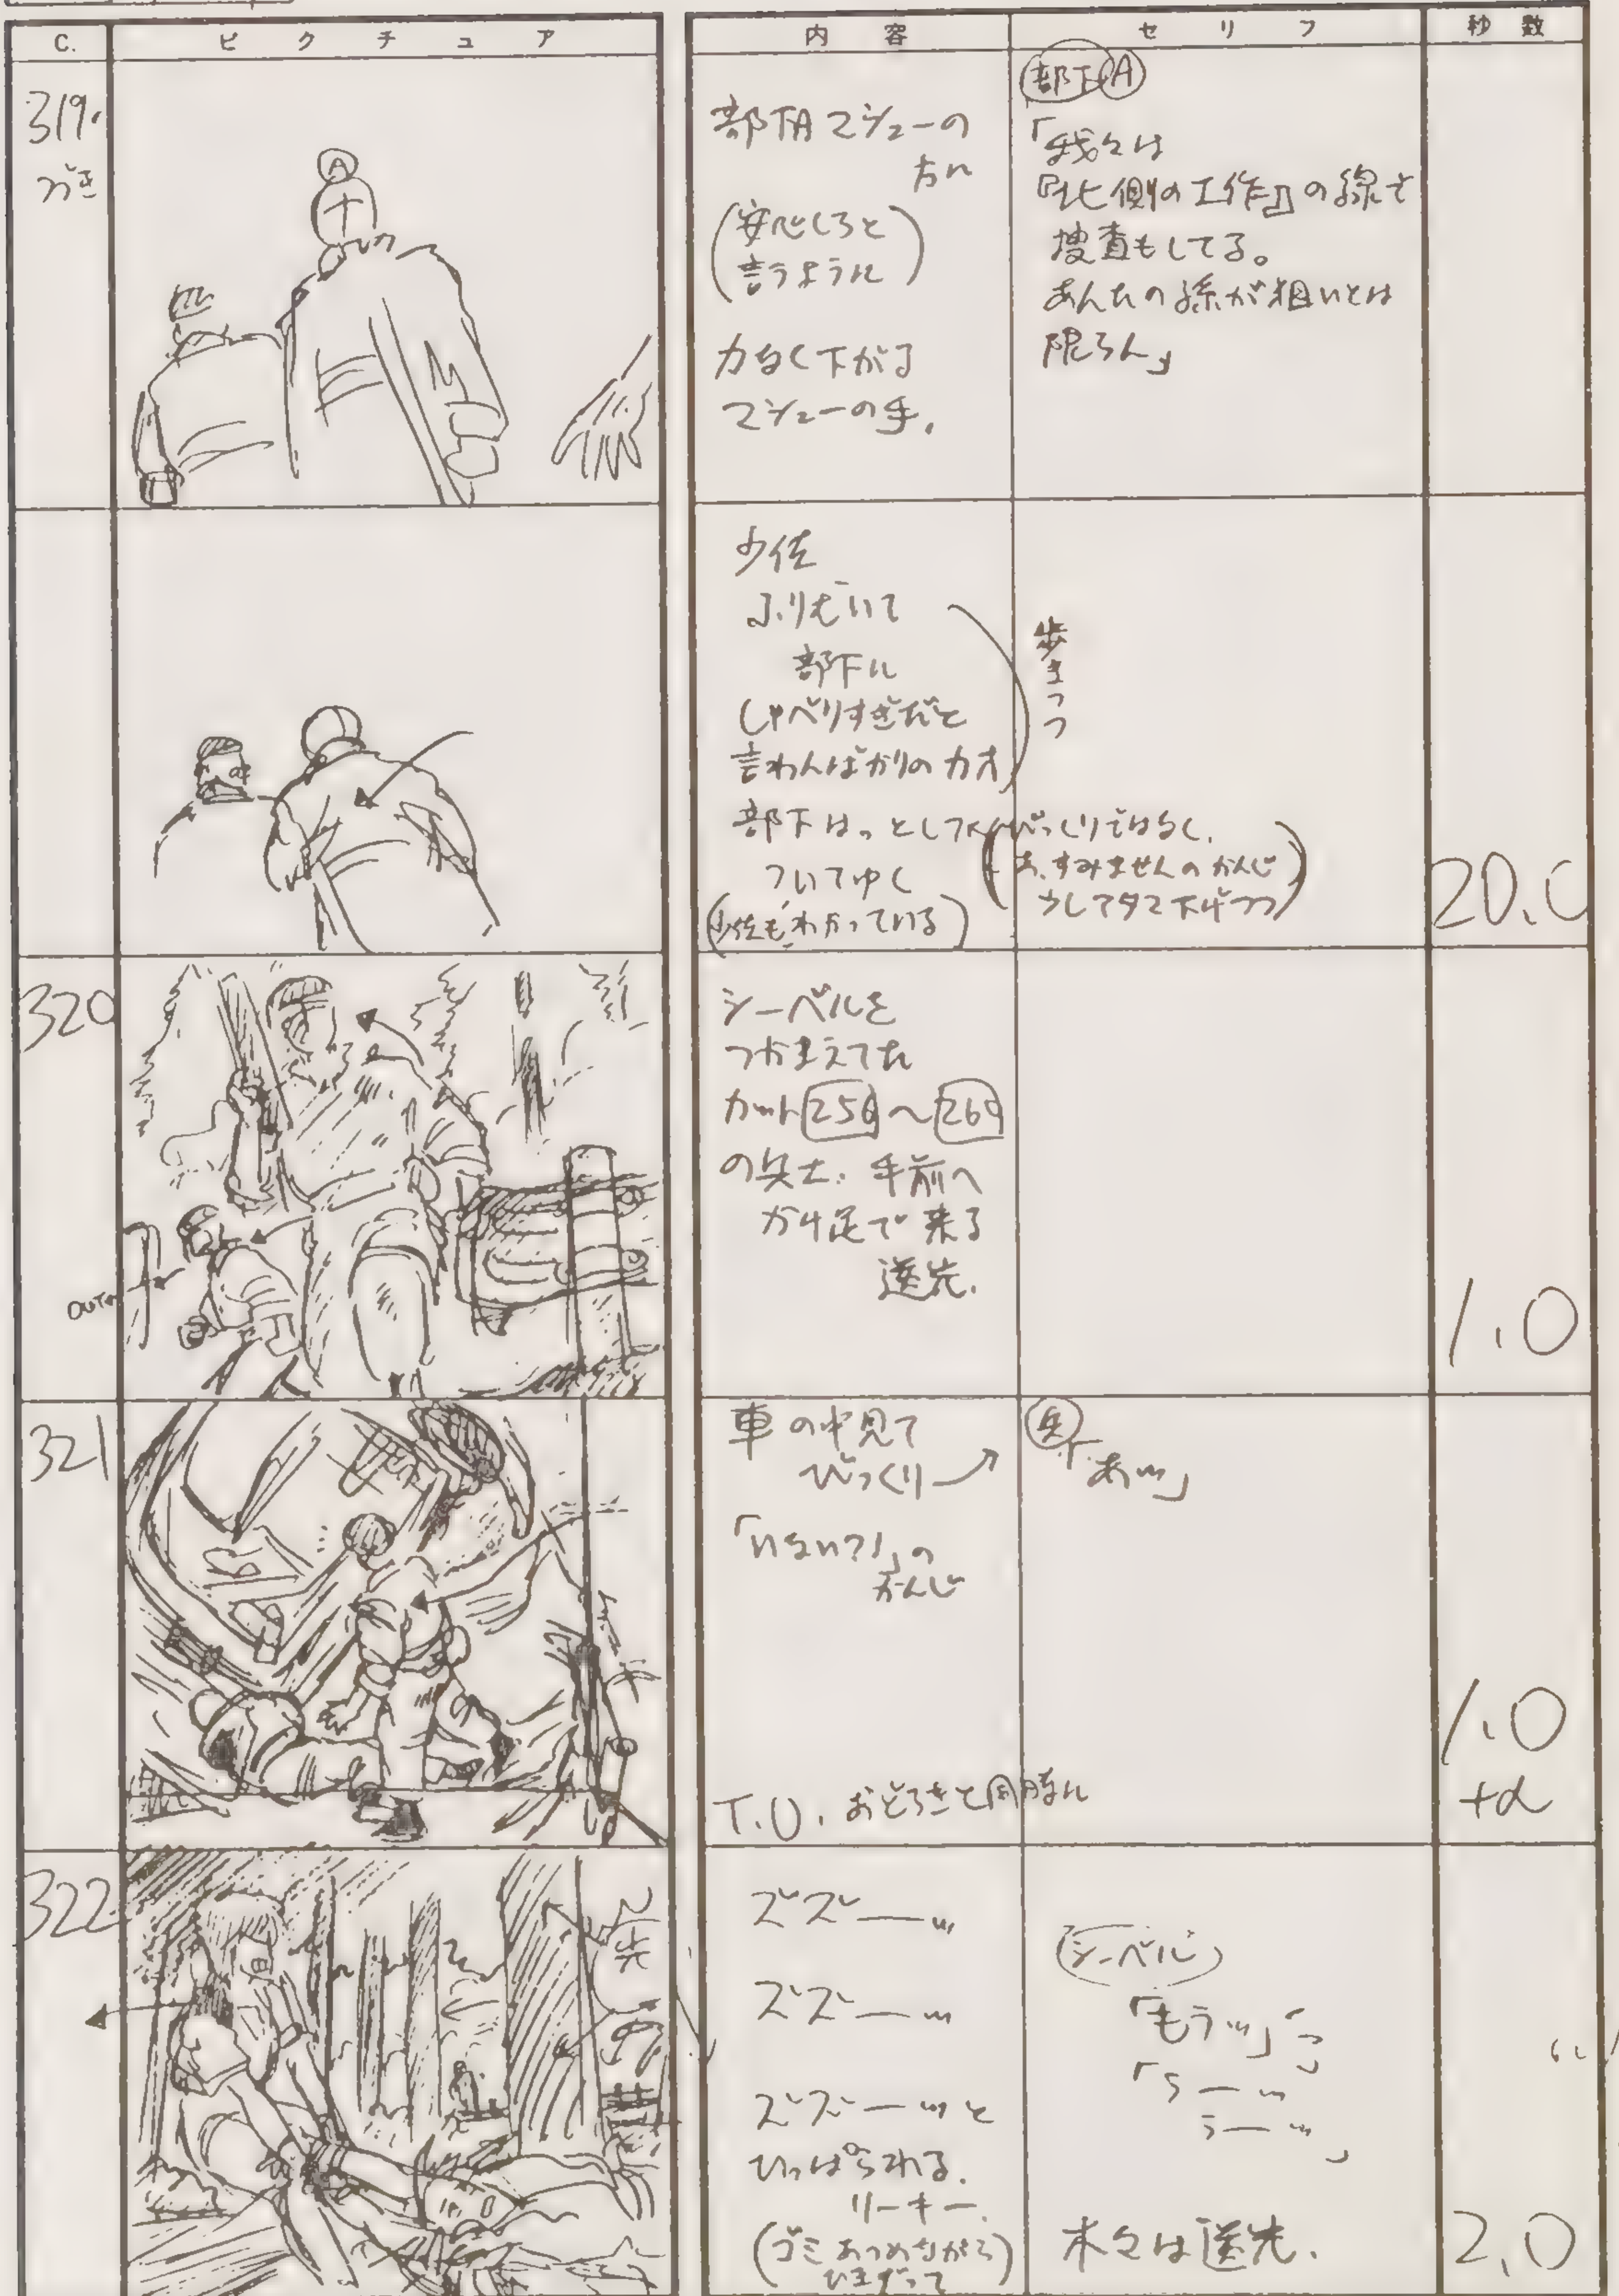 C. ピクチュア 内容 セリフ 秒数
319.
つづき
部下A マシューの
方に
(安心しろと
言うように)
力なく下がる
マシューの手.
部下A
「我々は
『北側の工作』の線で
捜査もしてる。
あんたの孫が狙いとは
限らん」
少佐
ふりむいて
部下に
しゃべりすぎだと
言わんばかりのカオ
歩きつつ
部下はっとして
ついてゆく
(少佐もわかっている)
(びっくりではなく.
あ、すみませんのかんじ
少してタマ下げつつ)
20.0
320
OUT
シーベルを
つかまえてた
カット256～269
の兵士. 手前へ
かけ足で来る
送先.
1.0
321
車の中見て
びっくり
「いない?!」の
かんじ
T.U. おどろきと同時に
兵
「あッ」
1.0
+α
322
ズズーッ
ズズーッ
ズズーッと
ひっぱられる.
リーキー.
(ゴミあつめながら
シーベル
「もうッ」
「うーッ
うーッ」
木々は送先.
2.0